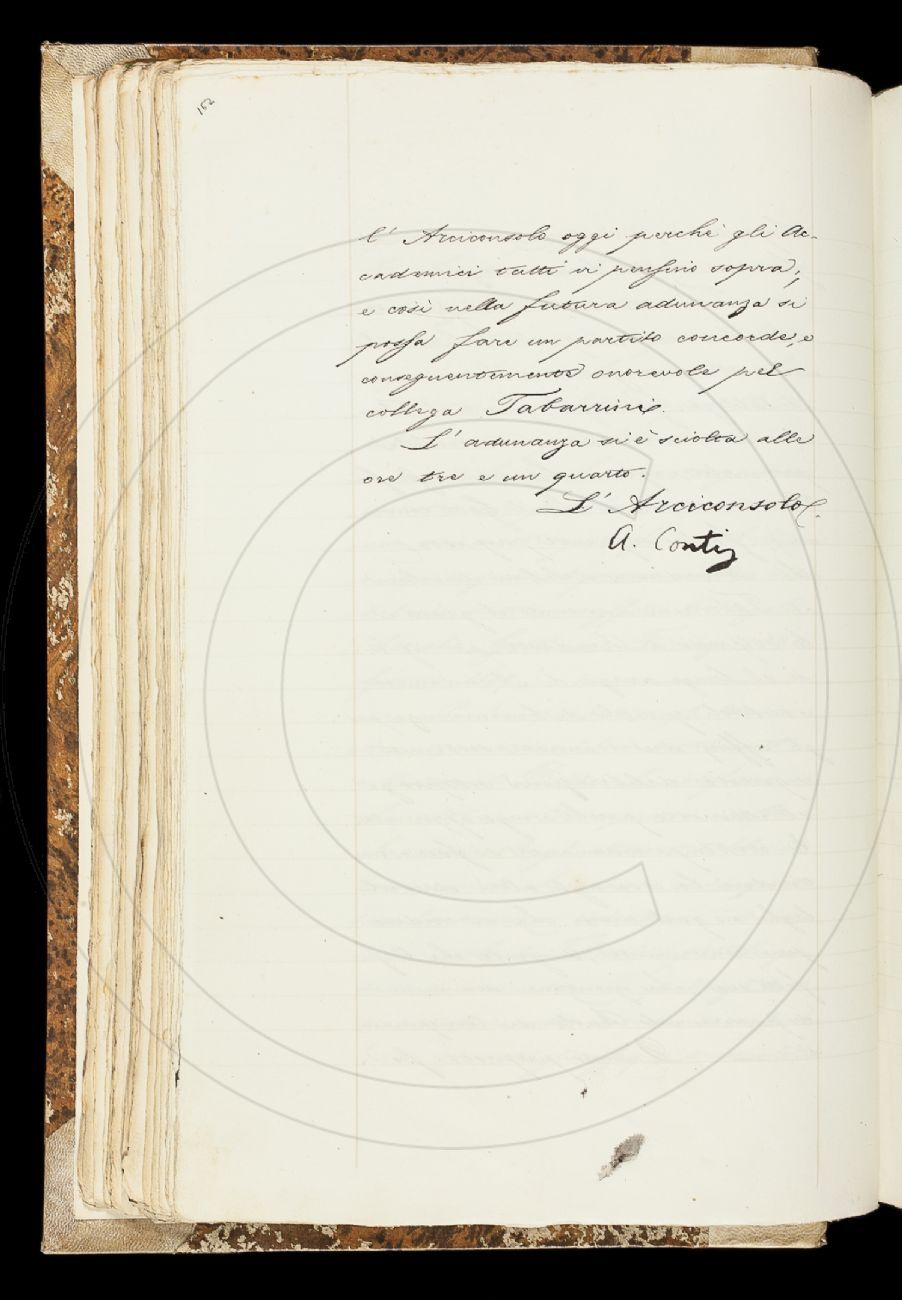 162
l' Arciconsolo oggi perchè gli Ac-
cademici tutti vi pensino sopra,
e così nella futura adunanza si
possa fare un partito concorde, e
conseguentemente onorevole pel
collega Tabarrini.
L' adunanza si è sciolta alle
ore tre e un quarto.
L' Arciconsolo
A. Conti